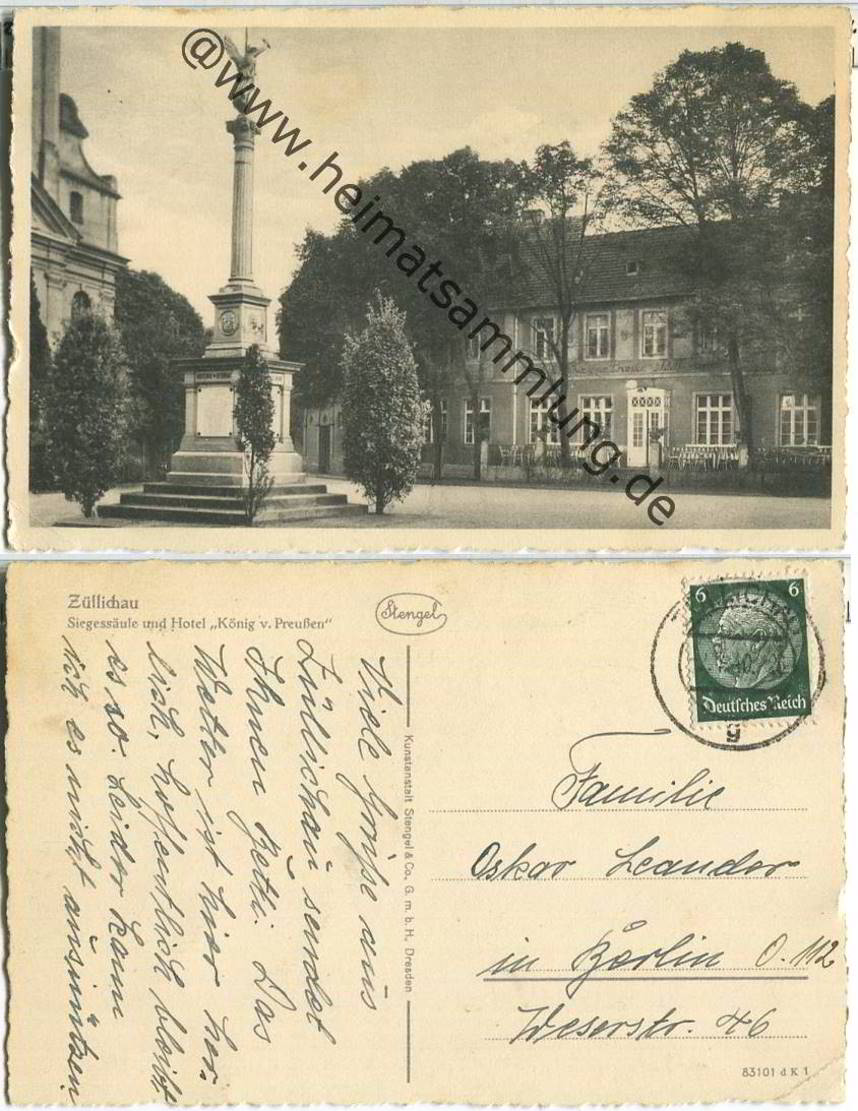 @www.heimatsammlung.de
Züllichau
Siegessäule und Hotel „König v. Preußen“
Stengel
6 6
Deutsches Reich
g
Viele Grüße aus
Züllichau sendet
Ihnen Hetti. Das
Wetter ist hier herr-
lich, hoffentlich bleibt
es so. Leider kann
ich es nicht ausnützen
Kunstanstalt Stengel & Co., G. m. b. H., Dresden
Familie
Oskar Leander
in Berlin O. 112
Weserstr. 46
83101 d K 1